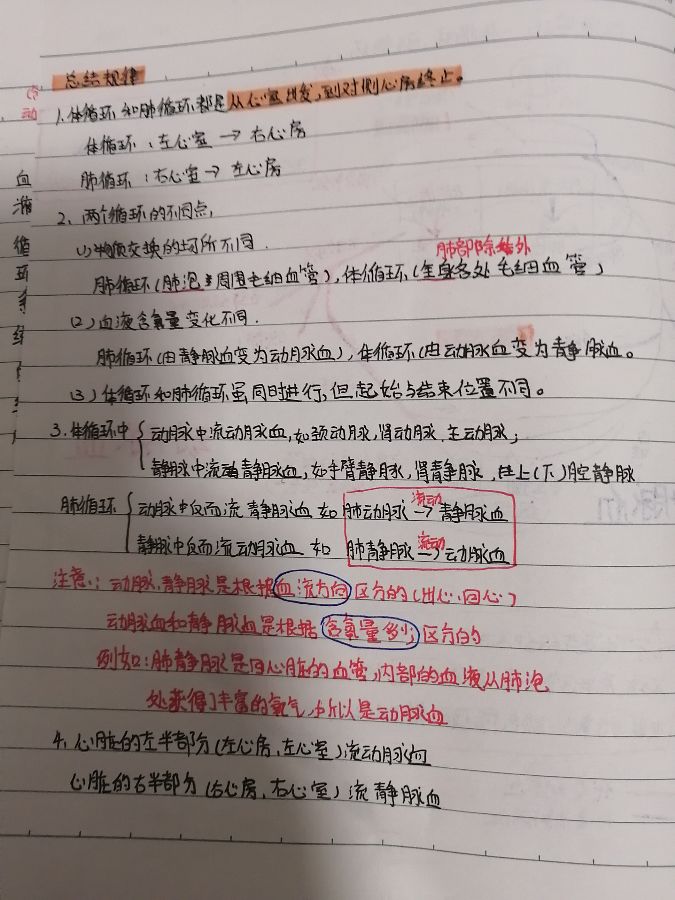 总结规律
1.体循环和肺循环都是从心室出发,到对侧心房终止。
体循环:左心室→右心房
肺循环:右心室→左心房
2、两个循环的不同点,
(1)物质交换的场所不同.
肺部除外
肺循环(肺泡周围毛细血管),体循环(全身各处毛细血管)
(2)血液含氧量变化不同.
肺循环(由静脉血变为动脉血),体循环(由动脉血变为静脉血。
(3)体循环和肺循环虽同时进行,但起始与结束位置不同。
3.体循环中{动脉中流动脉血,如颈动脉,肾动脉、主动脉;
静脉中流静脉血,如手臂静脉,肾静脉,上(下)腔静脉
肺循环{动脉中反而流静脉血 如 肺动脉 流动→ 静脉血
静脉中反而流动脉血 如 肺静脉 流动→ 动脉血
注意:动脉,静脉是根据血流方向区分的(出心、回心)
动脉血和静脉血是根据含氧量多少区分的
例如:肺静脉是回心脏的血管,内部的血液从肺泡
处获得了丰富的氧气,所以是动脉血
4、心脏的左半部分(左心房、左心室)流动脉血
心脏的右半部分(右心房、右心室)流静脉血
动
血
液
循
环
系